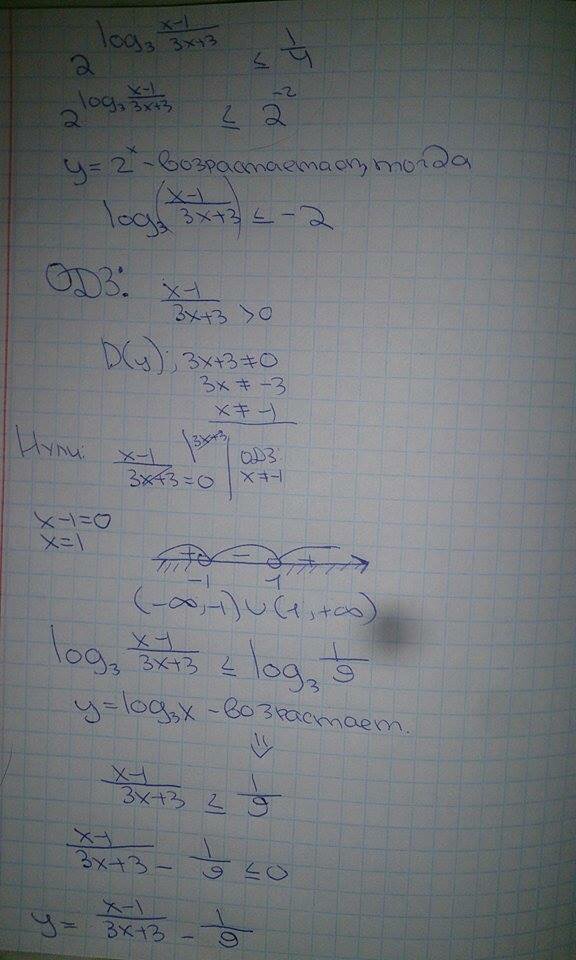 2^(log₃ (x-1)/(3x+3)) ≤ 1/4
2^(log₃ (x-1)/(3x+3)) ≤ 2^(-2)
y = 2ˣ - возрастает, тогда
log₃((x-1)/(3x+3)) ≤ -2
ОДЗ: (x-1)/(3x+3) > 0
D(y); 3x+3 ≠ 0
3x ≠ -3
x ≠ -1
Нули: (x-1)/(3x+3) = 0 | 3x+3 | ОДЗ: x ≠ -1
x-1=0
x=1
+ - +
-1 1
(-∞,-1)∪(1,+∞)
log₃ (x-1)/(3x+3) ≤ log₃ 1/9
y = log₃x - возрастает.
⇓
(x-1)/(3x+3) ≤ 1/9
(x-1)/(3x+3) - 1/9 ≤ 0
y = (x-1)/(3x+3) - 1/9